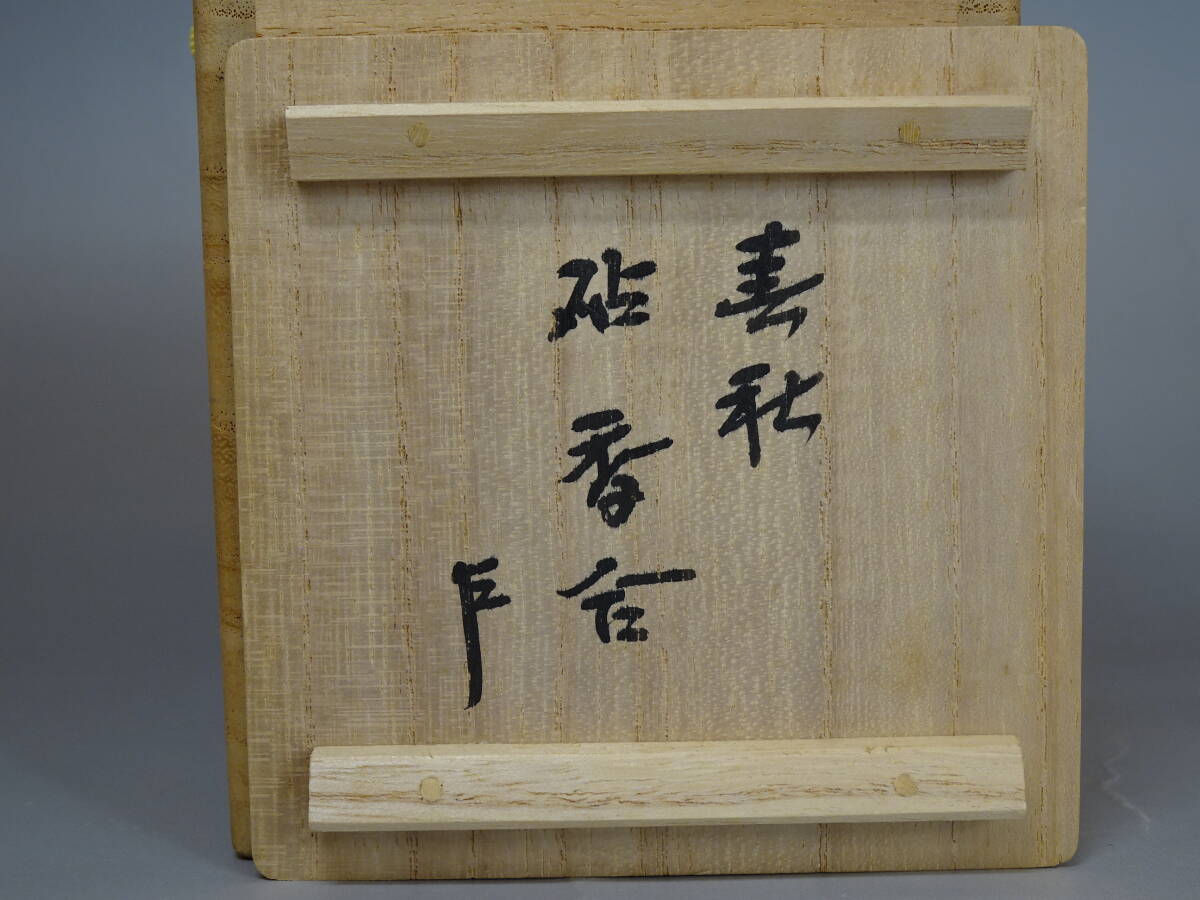 春秋
砧香合